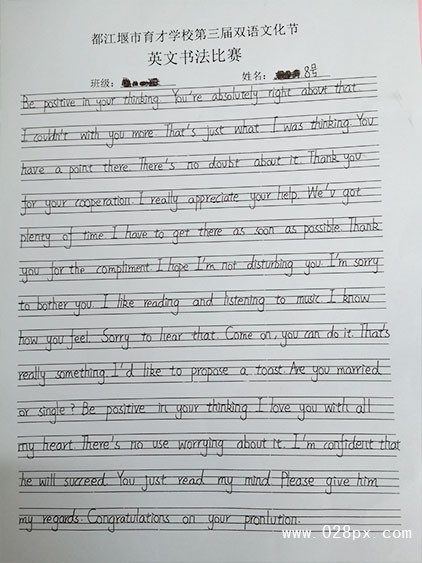 都江堰市育才学校第三届双语文化节
英文书法比赛
班级: 姓名: 8号
Be positive in your thinking. You're absolutely right about that.
I couldn't with you more. That's just what I was thinking. You
have a point there. There's no doubt about it. Thank you
for your cooperation. I really appreciate your help. We'v got
plenty of time I have to get there as soon as possible. Thank
you for the compliment. I hope I'm not disturbing you. I'm sorry
to bother you. I like reading and listening to music. I know
how you feel. Sorry to hear that. Come on, you can do it. That's
really something. I'd like to propose a toast. Are you married
or single? Be positive in your thinking. I love you with all
my heart. There's no use worrying about it. I'm confident that
he will succeed. You just read my mind. Please give him
my regards. Congratulations on your pronlution.
www.028px.com